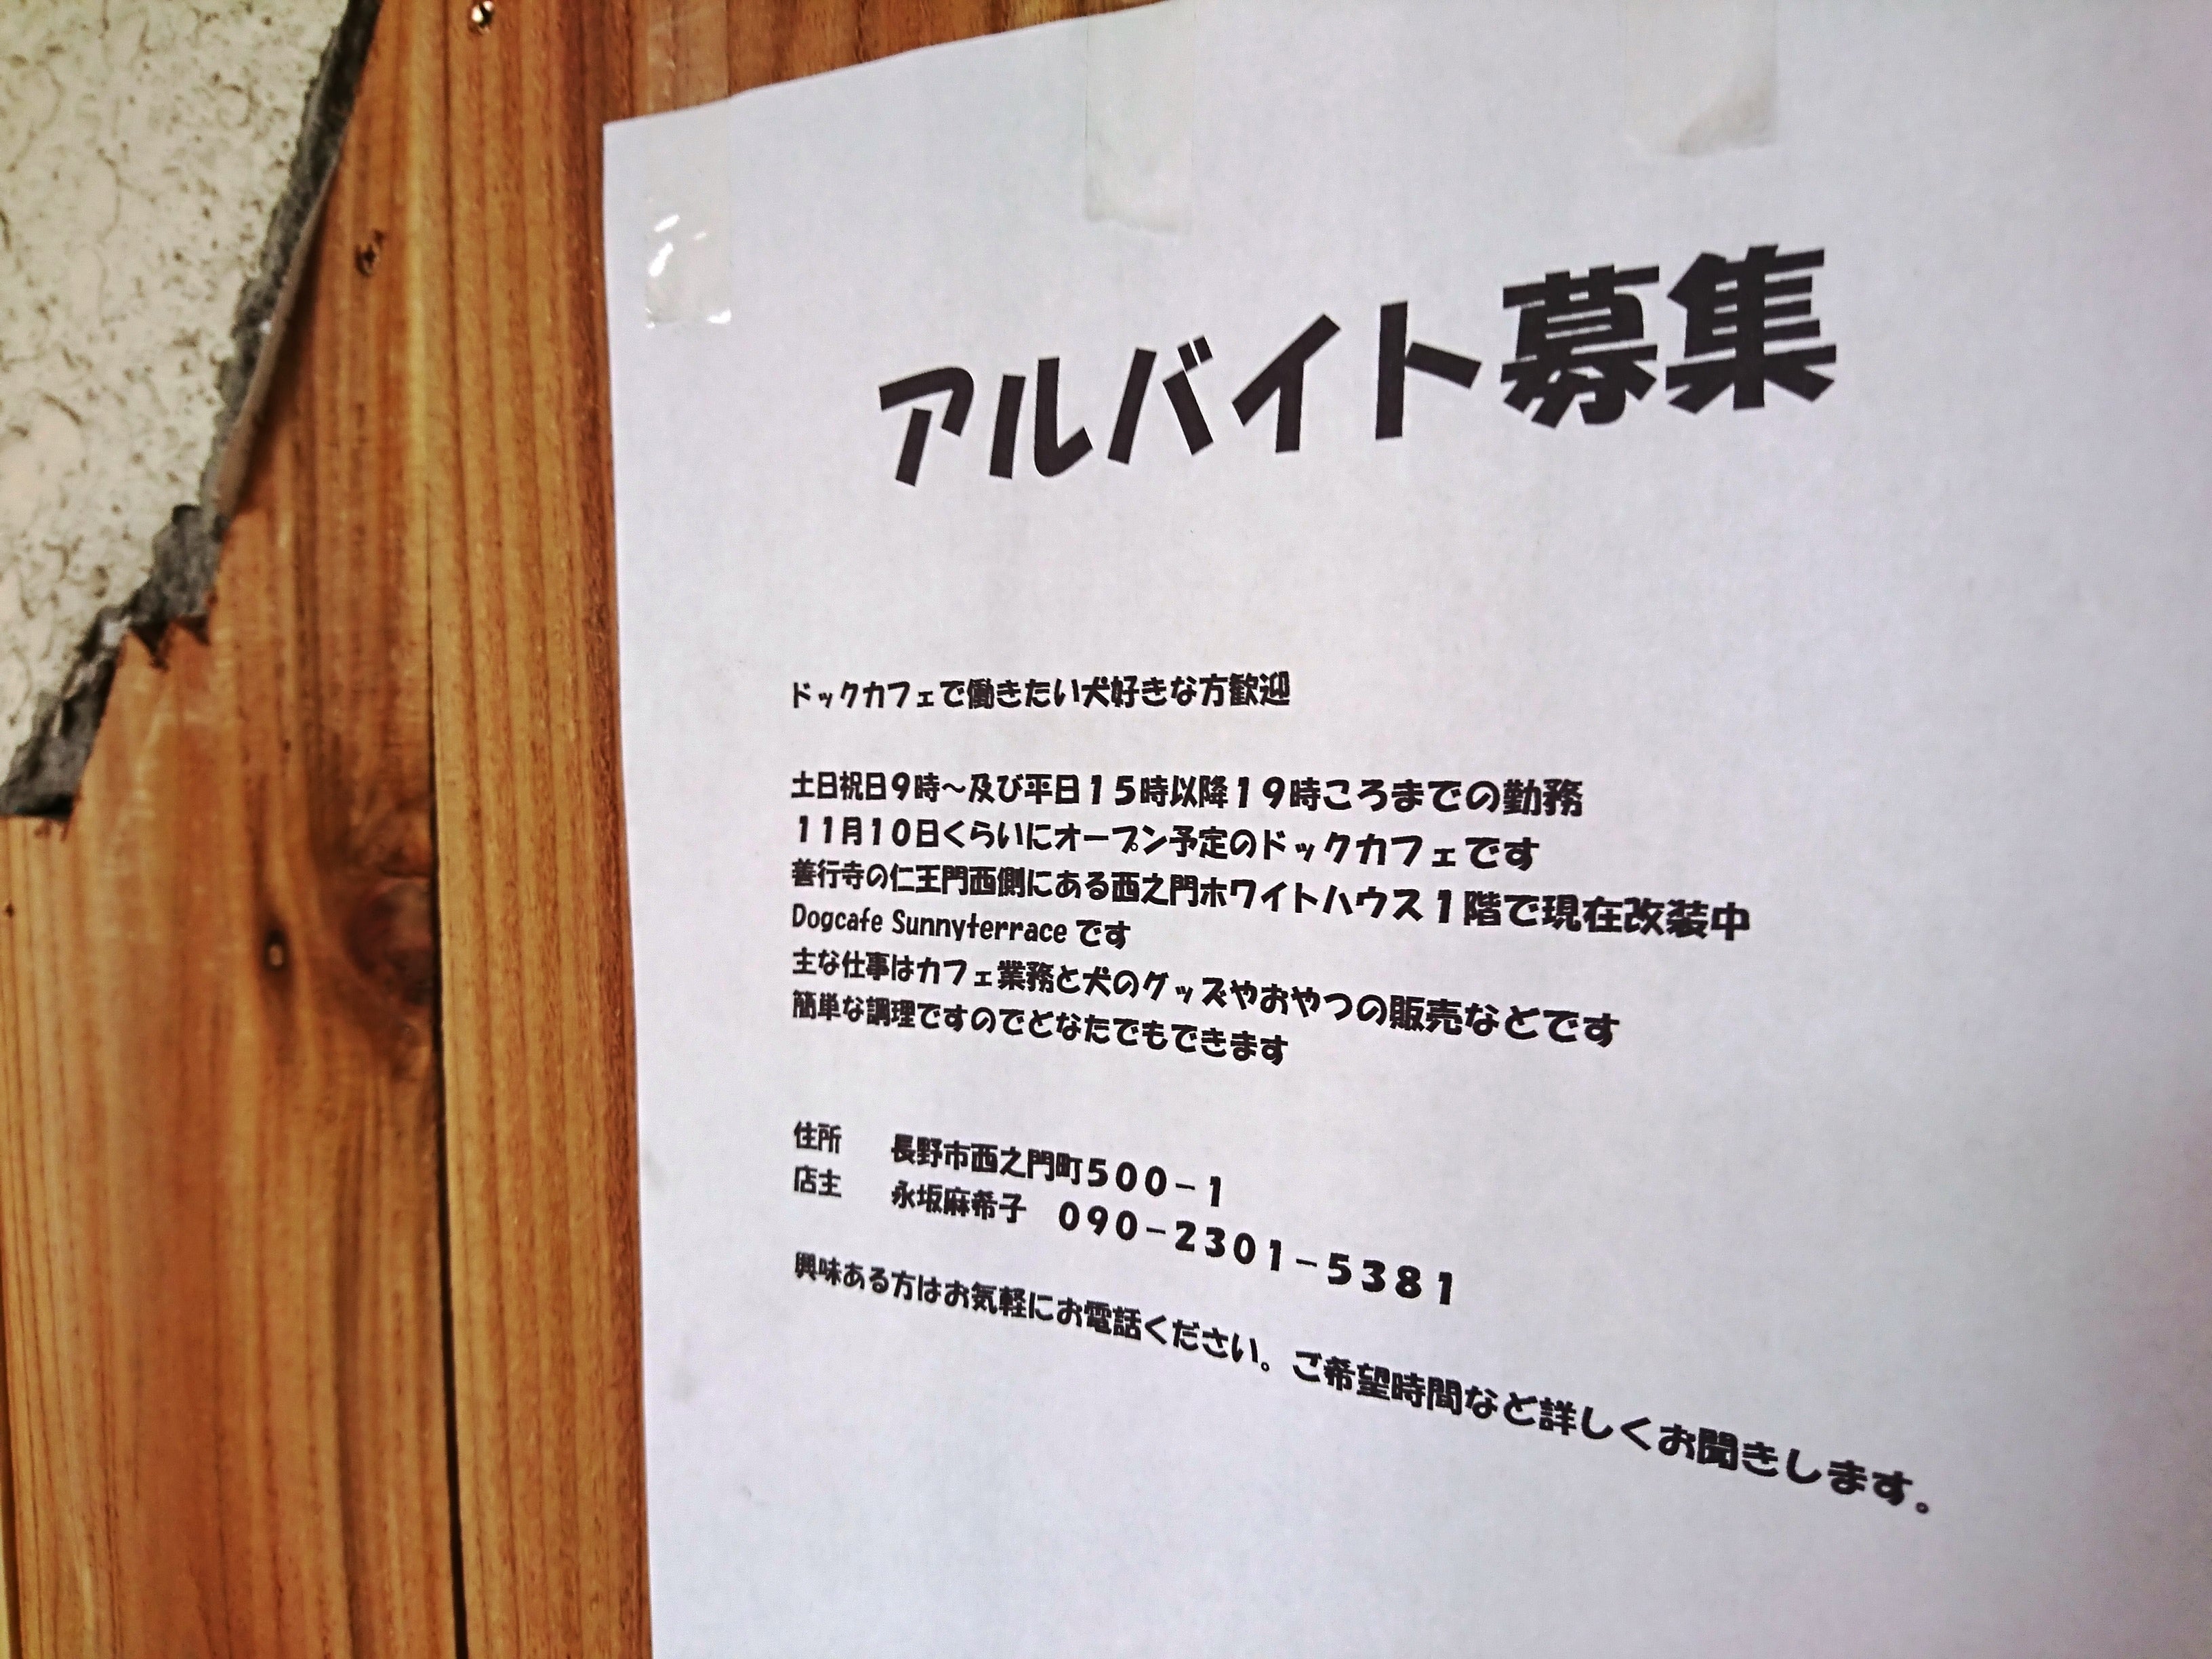 アルバイト募集
ドックカフェで働きたい犬好きな方歓迎
土日祝日９時～及び平日１５時以降１９時ころまでの勤務
１１月１０日くらいにオープン予定のドックカフェです
善行寺の仁王門西側にある西之門ホワイトハウス１階で現在改装中
Dogcafe Sunnyterrace です
主な仕事はカフェ業務と犬のグッズやおやつの販売などです
簡単な調理ですのでどなたでもできます
住所　長野市西之門町５００－１
店主　永坂麻希子　０９０－２３０１－５３８１
興味ある方はお気軽にお電話ください。ご希望時間など詳しくお聞きします。